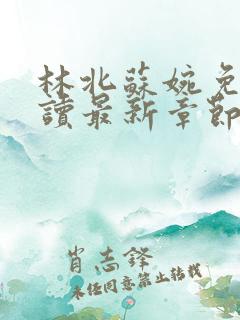 林北蘇婉免
讀最新章節
肖志鋒
未经同意禁止转载